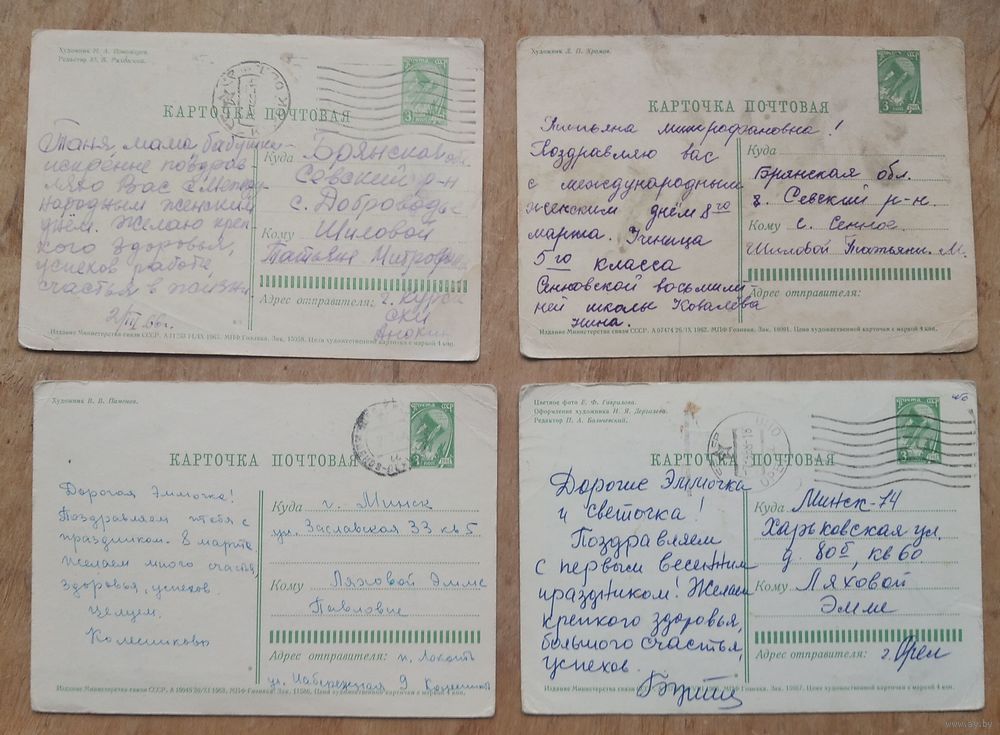 Художник Н. А. Пономарев.
КАРТОЧКА ПОЧТОВАЯ
ПОЧТА СССР
Таня, мама бабушка
искренне поздрав
ляю Вас с Между
народным женским
днём. Желаю креп
кого здоровья,
успехов работе,
счастья в жизни
2/III 66г.
Куда Брянская обл
Севский р-н
с. Доброводье
Кому Шиловой
Татьяне Митроф
Адрес отправителя: г. Курск
СХИ
Издание Министерства связи СССР.
МПФ Гознака. Зак. 15058. Цена художественной карточки с маркой 4 коп.
Художник Л. П. Храмов.
КАРТОЧКА ПОЧТОВАЯ
Татьяна Митрофановна!
Поздравляю вас
с международным
женским днём 8го
марта. Ученица
5го класса
восьмилет
ней школы Ковалёва
Нина.
Куда
Брянская обл.
Севский р-н
Кому с. Сенное
Шиловой Татьяни М.
Адрес отправителя:
Издание Министерства связи СССР. А 07474 26/IX 1962. МПФ Гознака. Зак. 18091. Цена художественной карточки с маркой 4 коп.
Художник В. В. Пименов.
КАРТОЧКА ПОЧТОВАЯ
Дорогая Эммочка!
Поздравляем тебя с
праздником 8 марта
желаем много счастья,
здоровья, успехов.
Целуем.
Колесниково
Куда г. Минск
ул. Заславская 33 кв 5
Кому Ляховой Эмме
Павловне
Адрес отправителя: п. Локоть
ул. Набережная 9
Издание Министерства связи СССР.
МПФ Гознака. Зак. 11586. Цена художественной карточки с маркой 4 коп.
Цветное фото Е. Ф. Гаврилова.
Оформление художника Н. Я. Дергалева.
КАРТОЧКА ПОЧТОВАЯ
Дорогие Эммочка
и Светочка!
Поздравляем
с первым весенним
праздником! Желаем
крепкого здоровья,
большого счастья,
успехов.
Куда Минск-14
Харьковская ул.
д. 80 кв 60
Кому Ляховой
Эмме
Адрес отправителя: г. Орел
Издание Министерства связи СССР.
МПФ Гознака. Цена художественной карточки с маркой 4 коп.
www.ay.by